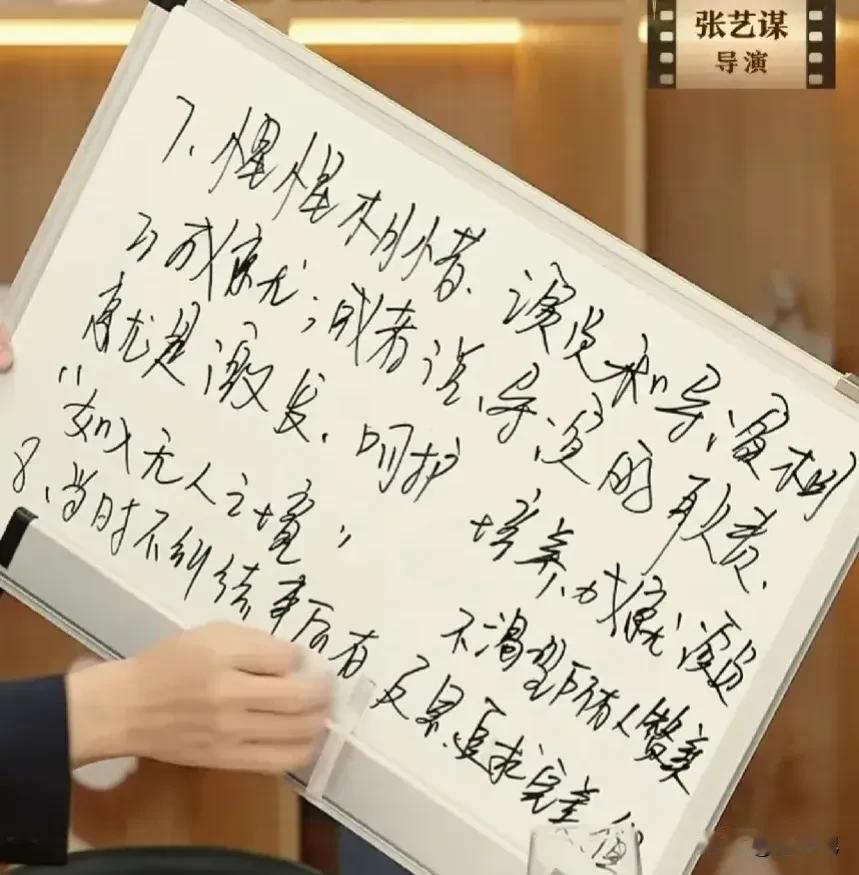 张艺谋
导演
7、惺惺相惜、演员和导演相
互成就；或者说、导演的职责、
就是激发、呵护 培养、成就演员
"如入无人之境" 不渴望所有人赞美
8、当时不纠结事后有反思、追求完美